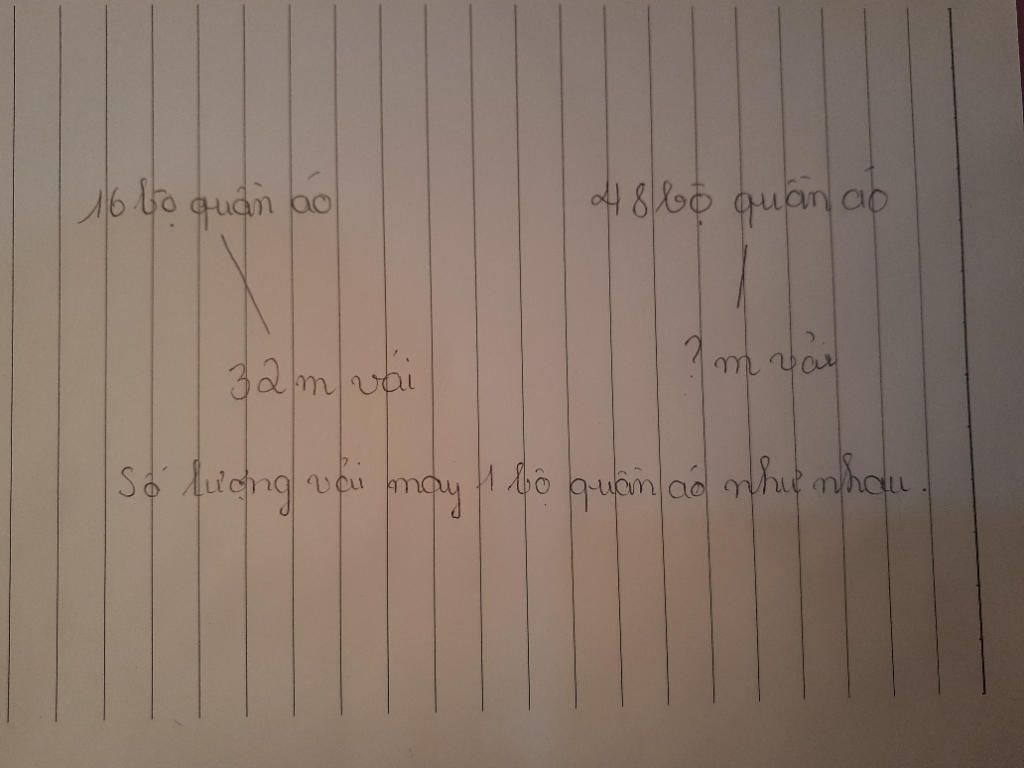 16 bọ quần áo 48 bộ quần áo
32m vải ? m vải
Số lượng vải may 1 bộ quần áo như nhau.